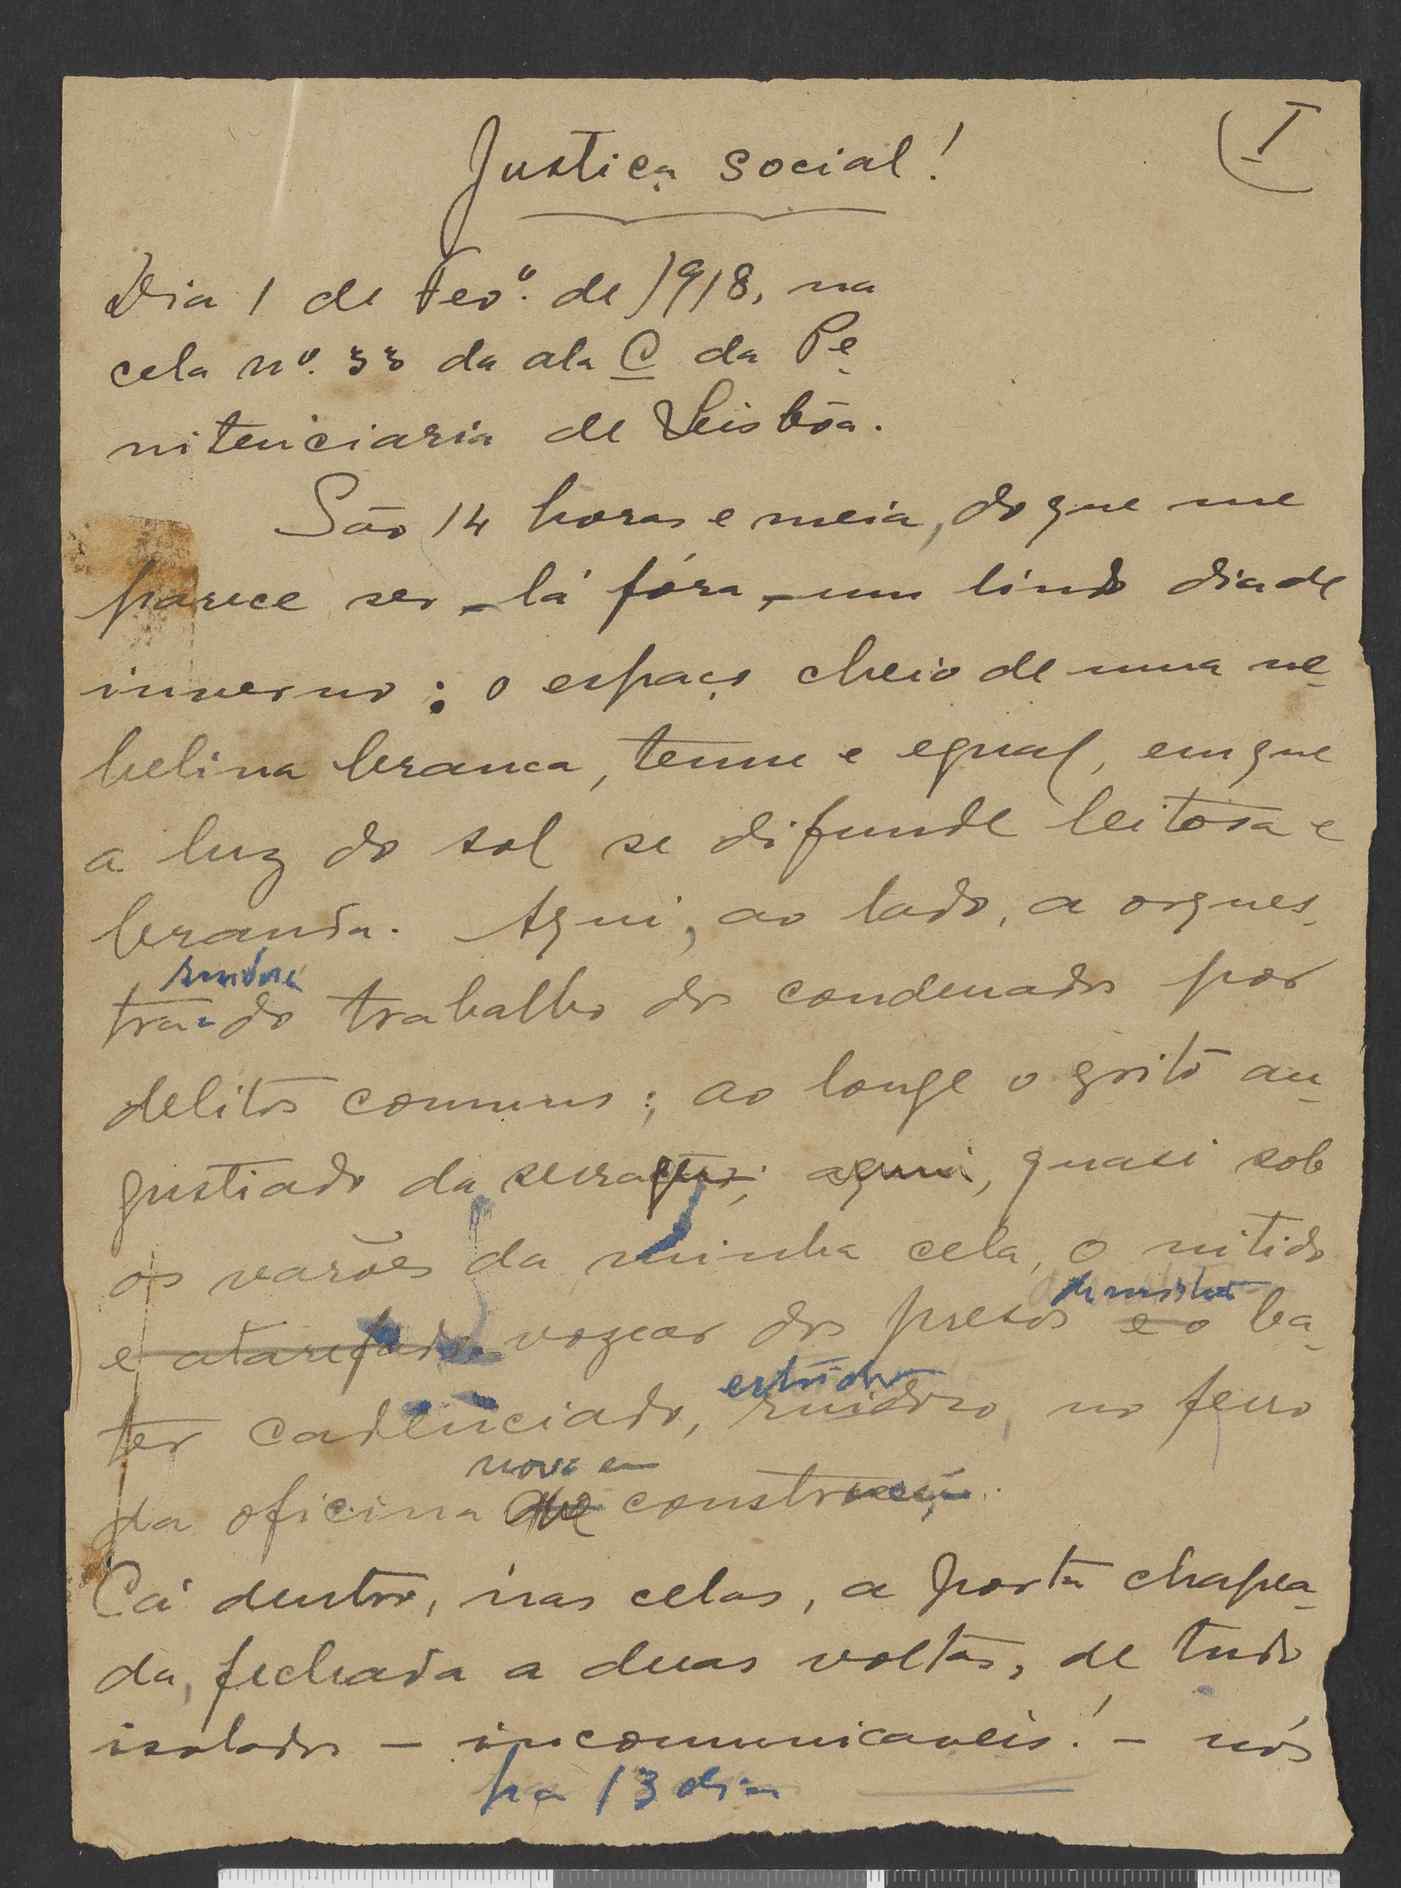 I
Justiça social!
Dia 1 de Fevº. de 1918, na
cela nº. 33 da ala C da Pe-
nitenciaria de Lisbôa.
São 14 horas e meia, do que me
parece ser - lá fóra - um lindo dia de
inverno: o espaço cheio de uma ne-
belina branca, tenue e egual, em que
a luz do sol se difunde leitosa e
branda. Aqui, ao lado, a orques-
tra do trabalho dos condenados por
delitos comuns; ao longe o grito an-
gustiado da serra; aqui, quasi sob
os varões da minha cela, o nitido
e atarefado vozear dos presos e o ba-
estridor
ter cadenciado, ruidoso, no ferro
nova em
da oficina de construção.
Cá dentro, nas celas, a porta chapea-
da, fechada a duas voltas, de tudo
isolados - incomunicaveis! - nós
ha 13 dias